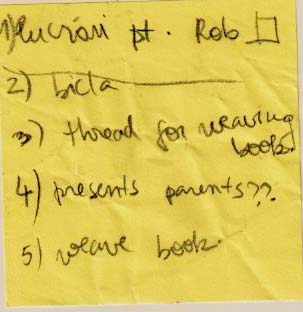 1) lucrări pt. Rob
2) bicta
3) thread for weaving
book.
4) presents parents??
5) weave book.